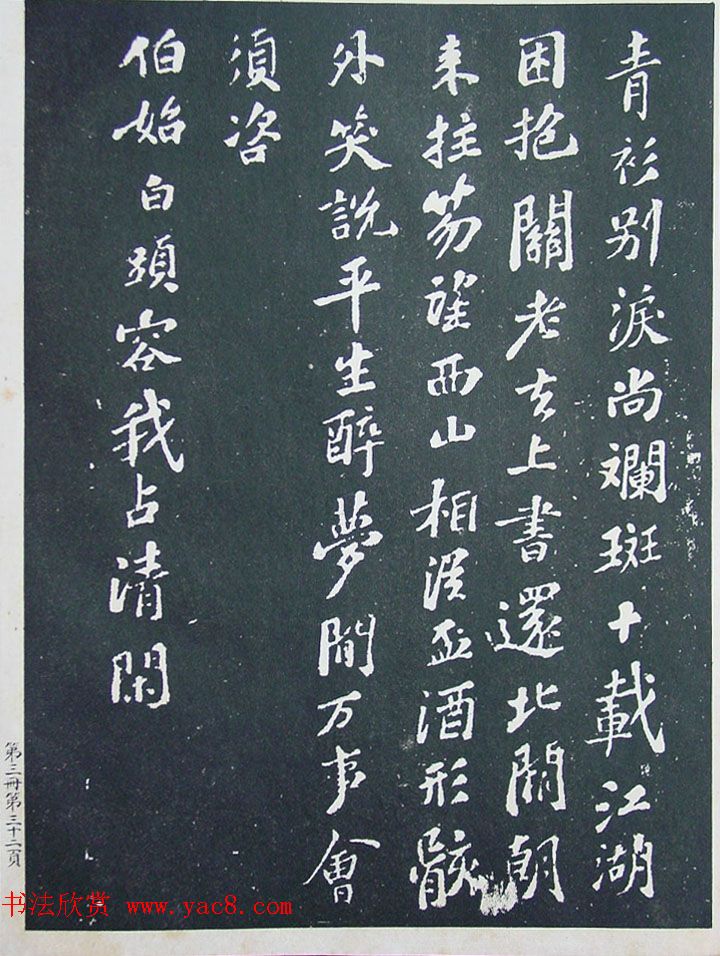 青衫別淚尚斕斑十載江湖
困抱關老去上書還北闕朝
来拄笏望西山相從盃酒形骸
外笑說平生醉夢間万事會
須咨
伯始白頭容我占清閑
第三册第三十二頁
书法欣赏 www.yac8.com